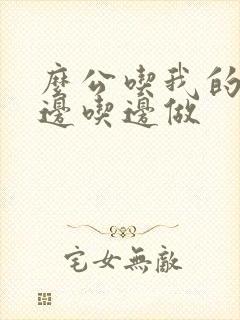 麼公喫我的
邊喫邊做
宅女無敵